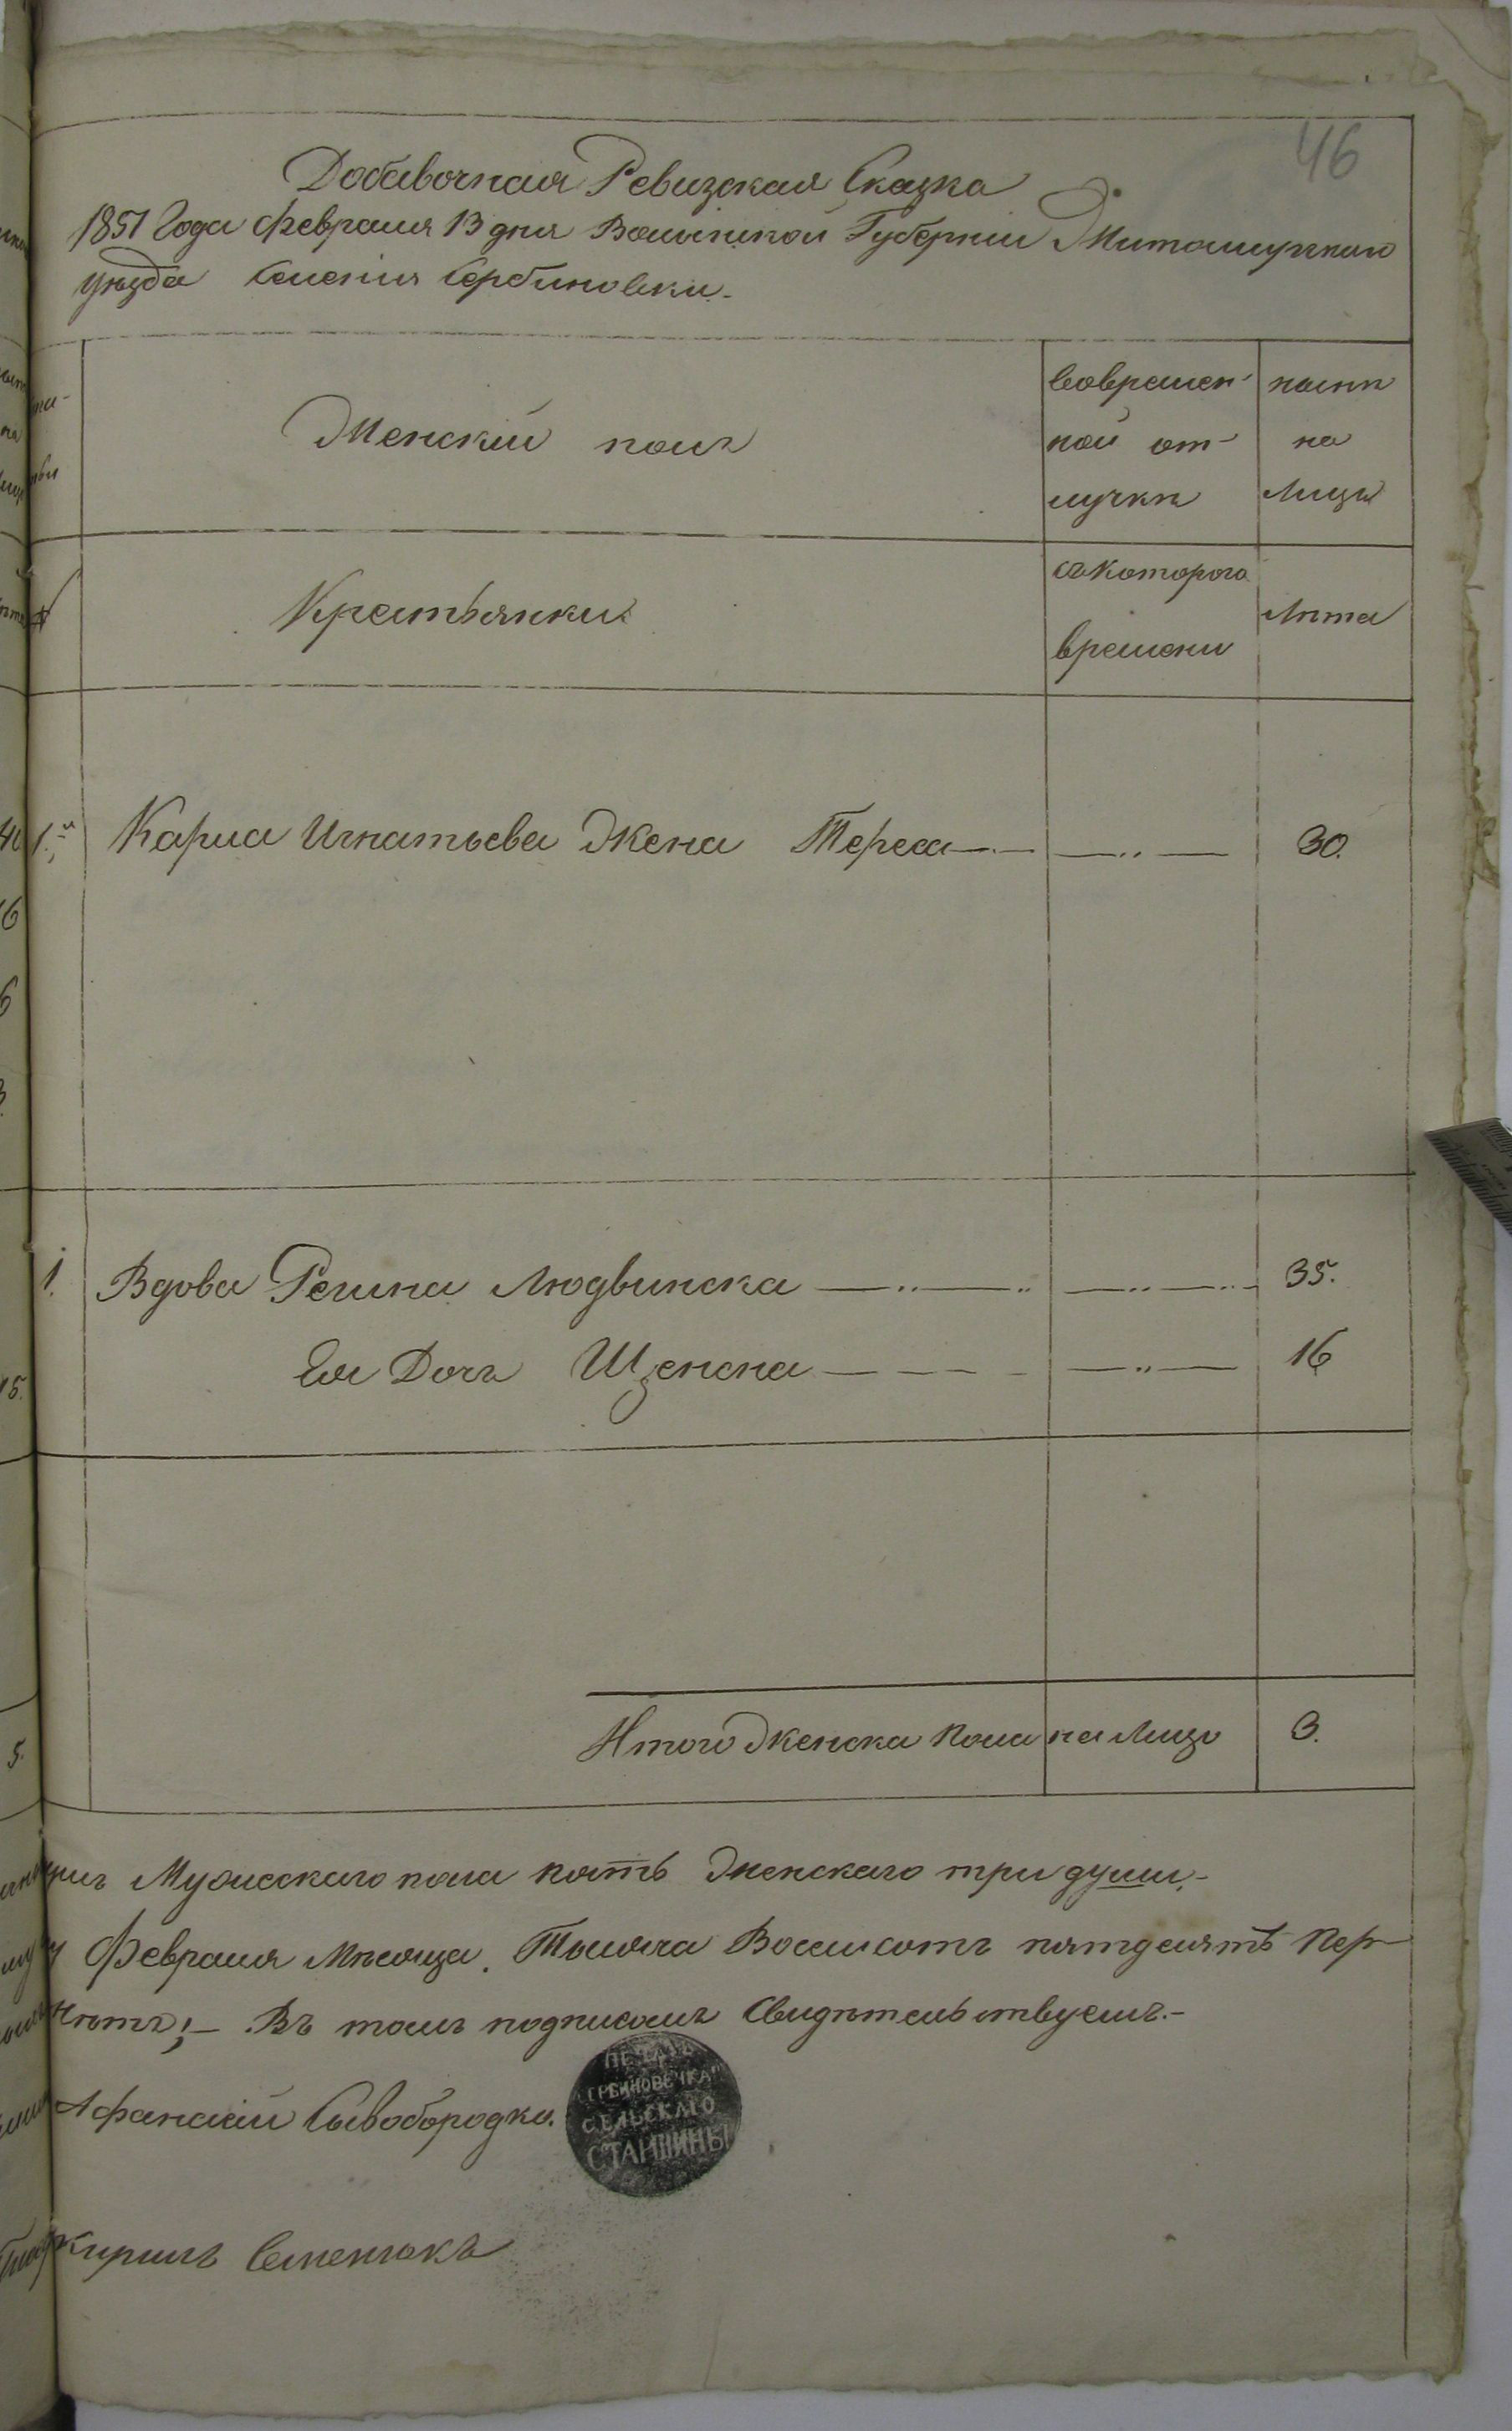 46
Добавочная Ревизская Сказка
1851 Года февраля 13 дня Волынской Губернии Житомирскаго
уезда Селения Сербиновки.
Женский полъ
вовремен-
ной от-
лучки
ныне
на
Лицо
Крестьянки
съ которого
времени
Лета
1.й Карла Игнатьева Жена Тереса 30.
1. Вдова Регина Людвинска 35.
Ея Дочъ Щенсна 16
Итого Женска Пола на Лицо 3.
Мужескаго пола пять Женскаго три души.-
Февраля Месяца. Тысяча Восемсотъ пятдесятъ Пер-
Въ томъ подписомъ Свидетельствуемъ.-
Афанасий Сывобородко.
ПЕЧАТЬ
СЕРБИНОВЕЧКАГО
СЕЛЬСКАГО
СТАРШИНЫ
Кирилъ Семенюкъ